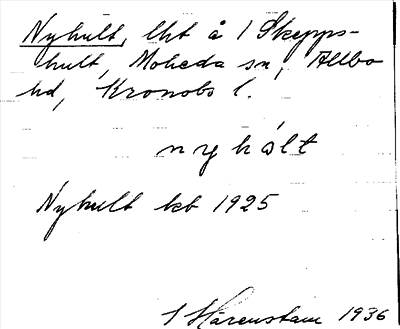 Nyhult, lht å 1 Skepps-
hult, Moheda sn, Allbo
hd, Kronobs l.
nyhålt
Nyhult kb 1925
S Härenstam 1936